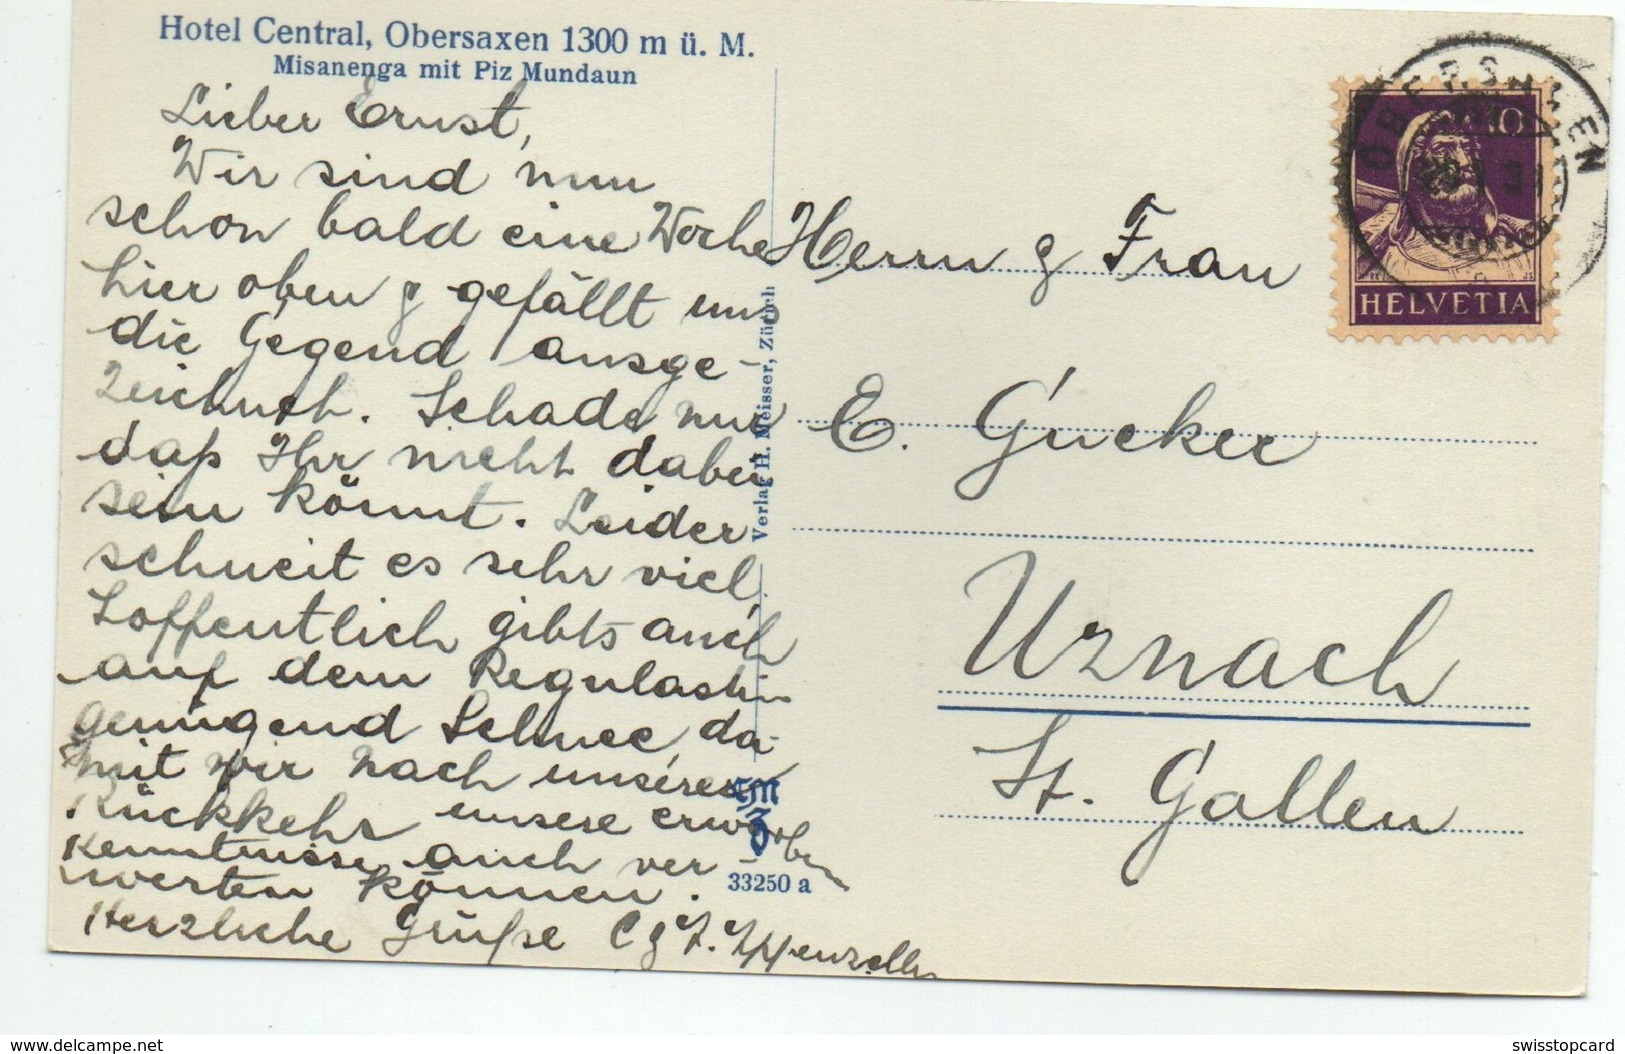 Hotel Central, Obersaxen 1300 m ü. M.
Misanenga mit Piz Mundaun
Lieber Ernst,
Wir sind nun
schon bald eine Woche
hier oben & gefällt uns
die Gegend ausge-
zeichnet. Schade nur
daß Ihr nicht dabei
sein könnt. Leider
schneit es sehr viel,
hoffentlich gibts auch
auf dem Regulastein
genügend Schnee da-
mit wir nach unserer
Rückkehr unsere erworbenen
Kenntnisse auch ver-
werten können.
Herzliche Grüße C & F. Appenzeller
Verlag H. Meisser, Zürich
33250 a
OBERSAXEN
10
HELVETIA
Herrn & Frau
E. Gucker
Uznach
St. Gallen
www.delcampe.net
swisstopcard